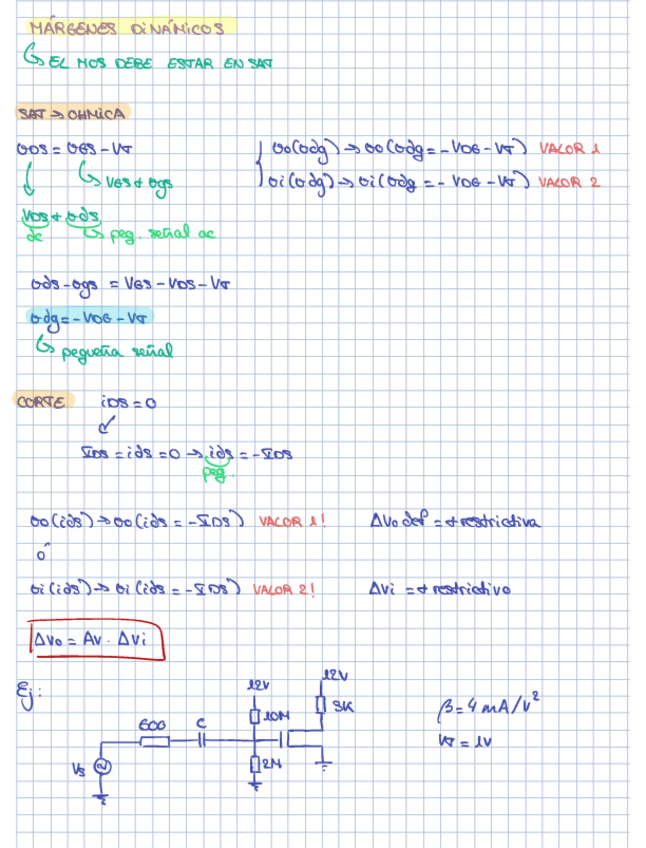 MÁRGENES DINÁMICOS
↳ EL MOS DEBE ESTAR EN SAT
SAT → OHMICA
vDS = vGS - VT
↳ VGS + vgs
VDS + vds
dc
↳ peq. señal ac
vo(vdg) → vo(vdg = -VDG - VT) VALOR 1
vi(vdg) → vi(vdg = - VDG - VT) VALOR 2
vds - vgs = VGS - VDS - VT
vdg = -VDG - VT
↳ pequeña señal
CORTE iDS = 0
IDS = ids = 0 → ids = -IDS
peq.
vo(ids) → vo(ids = -IDS) VALOR 1! ΔVo def = + restrictiva
ó
vi(ids) → vi(ids = -IDS) VALOR 2! ΔVi = + restrictivo
ΔVo = Av · ΔVi
Ej:
12V
12V
10M
3K
600
C
2M
Vs
β = 4 mA/V²
VT = 1V